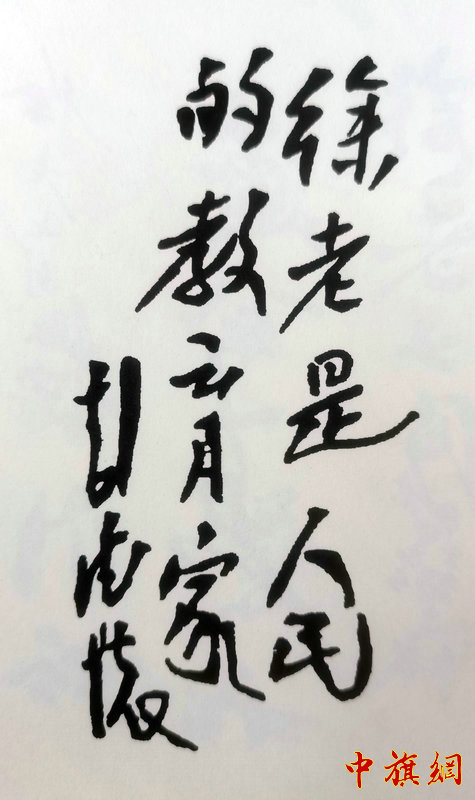 徐老是人民
的教育家
彭德懷
中旗網